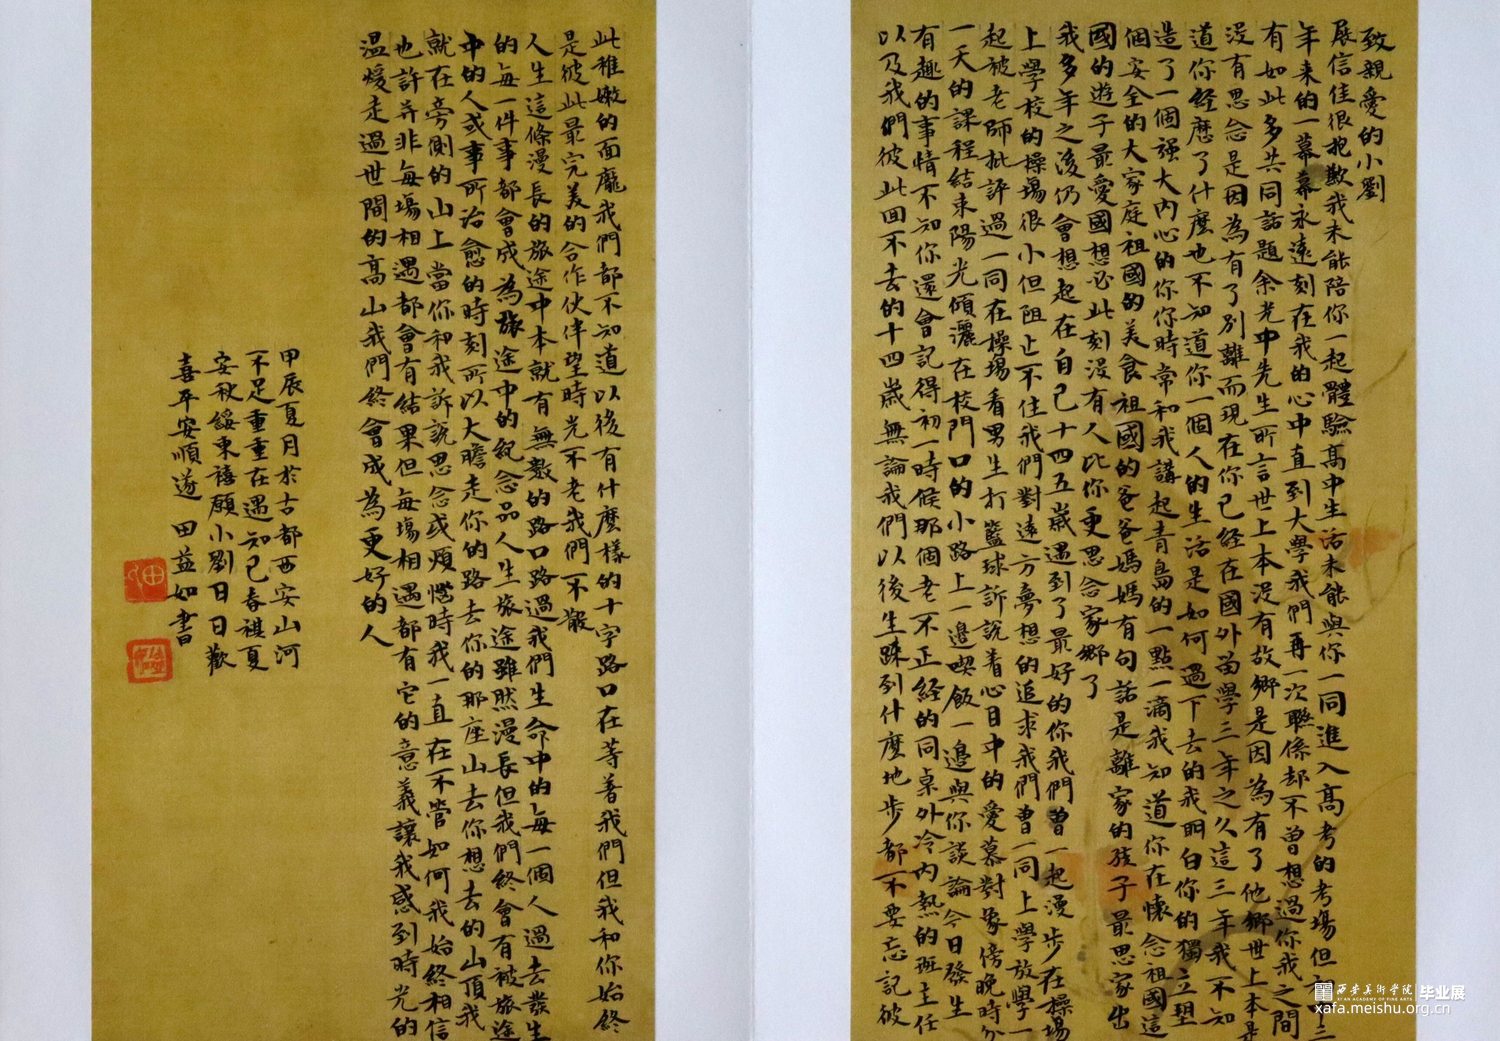 致親愛的小劉
展信佳很抱歉我未能陪你一起體驗高中生活未能與你一同進入高考的考場但三
年來的一幕幕永遠刻在我的心中直到大學我們再一次聯係却不曾想過你我之間
有如此多共同話題余光中先生所言世上本没有故鄉是因為有了他鄉世上本是
没有思念是因為有了別離而現在你已經在國外留學三年之久這三年我不知
道你經歷了什麼也不知道你一個人的生活是如何過下去的我明白你的獨立塑
造了一個强大内心的你你時常和我講起青島的一點一滴我知道你在懷念祖國這
個安全的大家庭祖國的美食祖國的爸爸媽媽有句話是離家的孩子最思家出
國的遊子最愛國想必此刻没有人比你更思念家鄉了
我多年之後仍會想起在自己十四五歲遇到了最好的你我們曾一起漫步在操場
上學校的操場很小但阻止不住我們對遠方夢想的追求我們曾一同上學放學一
起被老師批評過一同在操場看男生打籃球訴説着心目中的愛慕對象傍晚時分
一天的課程結束陽光傾灑在校門口的小路上一邊喫飯一邊與你談論今日發生
有趣的事情不知你還會記得初一時候那個老不正經的同桌外冷内熱的班主任
以及我們彼此回不去的十四歲無論我們以後生疎到什麼地步都不要忘記彼
此稚嫩的面龐我們都不知道以後有什麼樣的十字路口在等着我們但我和你始終
是彼此最完美的合作伙伴望時光不老我們不散
人生這條漫長的旅途中本就有無數的路口路過我們生命中的每一個人過去發生
的每一件事都會成為旅途中的紀念品人生旅途雖然漫長但我們終會有被旅途
中的人或事所治愈的時刻所以大膽走你的路去你的那座山去你想去的山頂我
就在旁側的山上當你和我訴説思念或煩惱時我一直在不管如何我始終相信
也許并非每場相遇都會有結果但每場相遇都有它的意義讓我感到時光的
温煖走過世間的高山我們終會成為更好的人
甲辰夏月於古都西安山河
不足重重在遇知己春祺夏
安秋綏東禧願小劉日日歡
喜平安順遂 田益如書
西安美術學院 毕业展
XI'AN ACADEMY OF FINE ARTS
xafa.meishu.org.cn